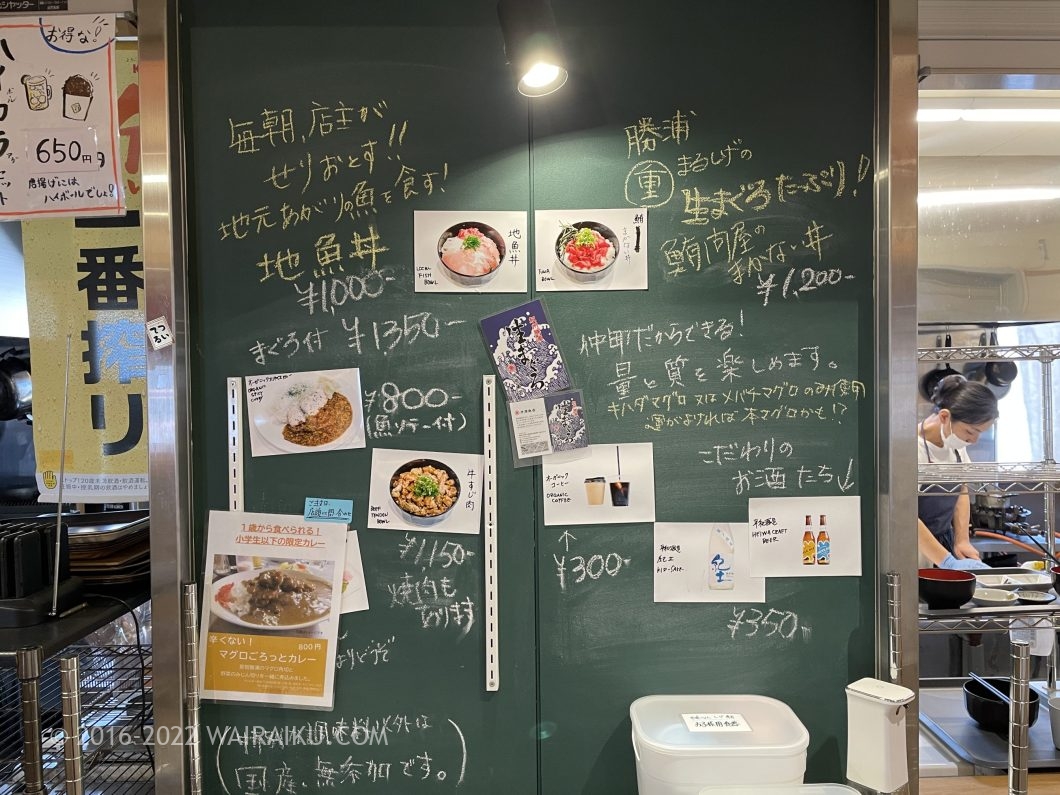 お得な!
650円
唐揚げには
ハイボールでしょ!
一番搾り
毎朝、店主が
せりおとす!!
地元あがりの魚を食す!
地魚丼
¥1,000-
まぐろ付 ¥1,350-
地魚丼
LOCAL
FISH
BOWL
TUNA
BOWL
勝浦
重 まるしげの
生まぐろたっぷり!
鮪問屋の
まかない丼
¥1,200-
仲町だからできる!
量と質を楽しめます。
キハダマグロ又はメバチマグロのみ使用
運がよければ本マグロかも!?
こだわりの
お酒たち↓
ORGANIC
SPICY
CURRY
¥800-
(魚ソテー付)
牛すじ肉
BEEF
TENDON
BOWL
¥1,150-
焼肉も
あります
オーガニック
コーヒー
ORGANIC
COFFEE
↑
¥300-
平和酒造
紀土
KID-SAKE
紀土
平和酒造
HEIWA CRAFT
BEER
¥350-
1歳から食べられる!
小学生以下の限定カレー
辛くない! 800円
マグロごろっとカレー
調味料以外は
国産、無添加です。)
© 2016-2022 WAHRAIKU.COM